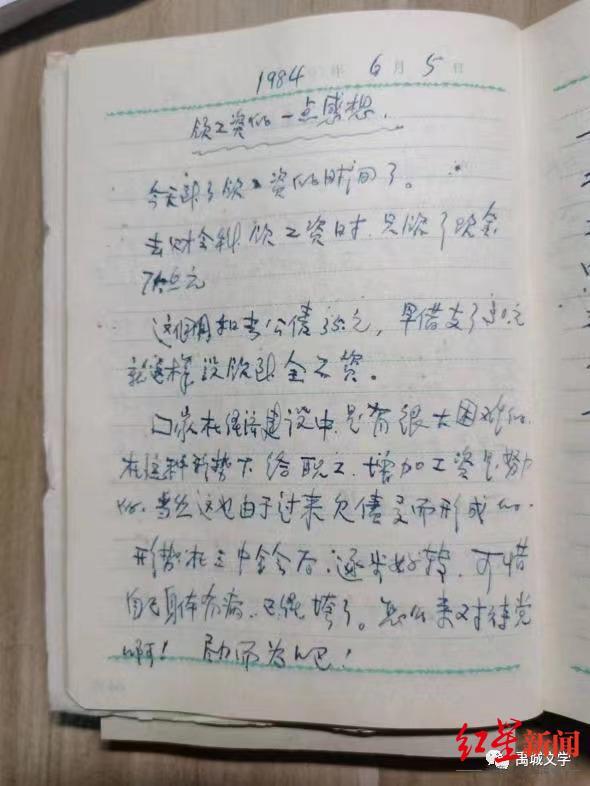 1984年 6月 5日
领工资的一点感想.
今天到了领工资的时间了。
去财会科领工资时.只领了现金
元
这个月扣去公债35元,早借支了30元
就这样没领到全工资。
国家在经济建设中.是有很大困难的.
在这种形势下给职工.增加工资是努力
的.当然这也由于过来欠债多而形成的.
形势在三中全会后.逐步好转.可惜
自己身体有病.已累垮了。怎么来对待党
啊!尽力而为吧!
红星新闻
禹城文学